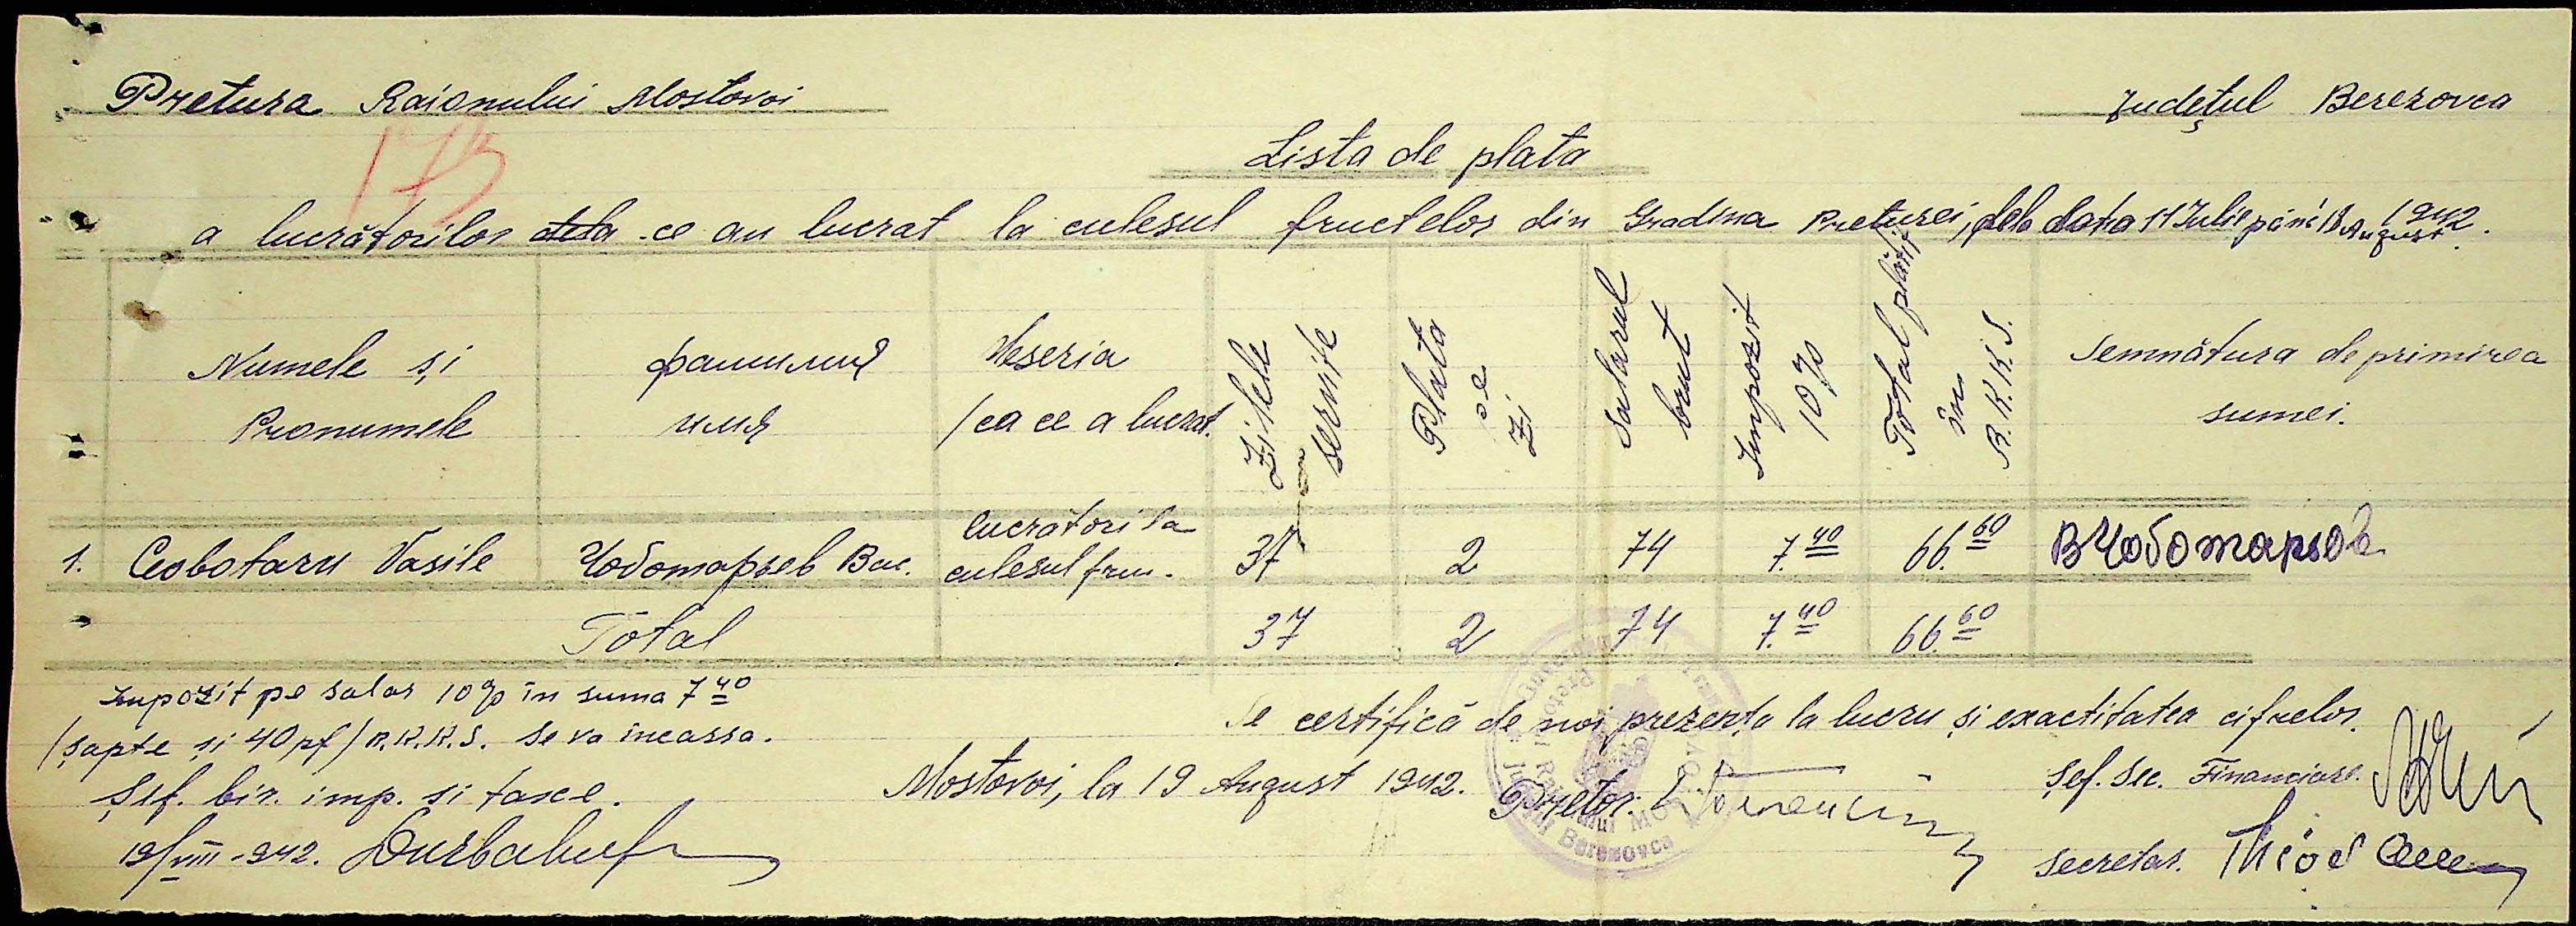 Pretura Raionului Mostovoi
Județul Berezovca
173
Lista de plata
a lucrătorilor dela ce au lucrat la culesul fructelor din Gradina Preturei, dela data 11 Iulie până 18 August 1942.
Numele și Pronumele
фамилия имя
Meseria /ea ce a lucrat.
Zilele servite
Plata pe zi
Salarul brut
Impozit 10%
Total plătit în R.K.K.S.
Semnătura de primirea sumei.
1. Ceobotaru Vasile Чоботарьев Вас. lucrători la culesul fruc. 37 2 74 7.40 66.60 В Чоботарьов
Total 37 2 74 7.40 66.60
Impozit pe salar 10% în suma 7 40
/șapte și 40 pf/ R.K.K.S. se va încassa.
Șef. bir. imp. si taxe.
19/VIII-942.
Se certifică de noi prezența la lucru și exactitatea cifrelor.
Mostovoi, la 19 August 1942.
Pretor.
Șef. Sec. Financiare.
Secretar.
Berezovca